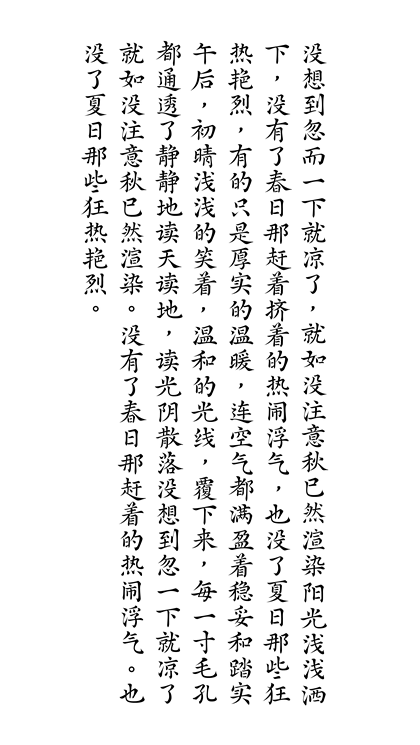 没想到忽而一下就凉了，就如没注意秋已然渲染阳光浅浅洒
下，没有了春日那赶着挤着的热闹浮气，也没了夏日那些狂
热艳烈，有的只是厚实的温暖，连空气都满盈着稳妥和踏实
午后，初晴浅浅的笑着，温和的光线，覆下来，每一寸毛孔
都通透了静静地读天读地，读光阴散落没想到忽一下就凉了
就如没注意秋已然渲染。没有了春日那赶着的热闹浮气。也
没了夏日那些狂热艳烈。